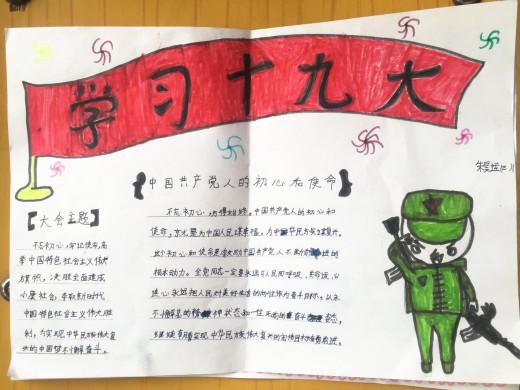 学习十九大
{中国共产党人的初心和使命}
【大会主题】
不忘初心,牢记使命,高
举中国特色社会主义伟大
旗帜,决胜全面建成
小康社会,夺取新时代
中国特色社会主义伟大胜
利,为实现中华民族伟大复
兴的中国梦不懈奋斗。
不忘初心,方得始终。中国共产党人的初心和
使命,就是为中国人民谋幸福,为中华民族谋复兴。
这个初心和使命是激励中国共产党人不断前进的
根本动力。全党同志一定要永远与人民同呼吸、共命运、心
连心,永远把人民对美好生活的向往作为奋斗目标,以永
不懈怠的精神状态和一往无前的奋斗姿态,
继续朝着实现中华民族伟大复兴的宏伟目标奋勇前进。